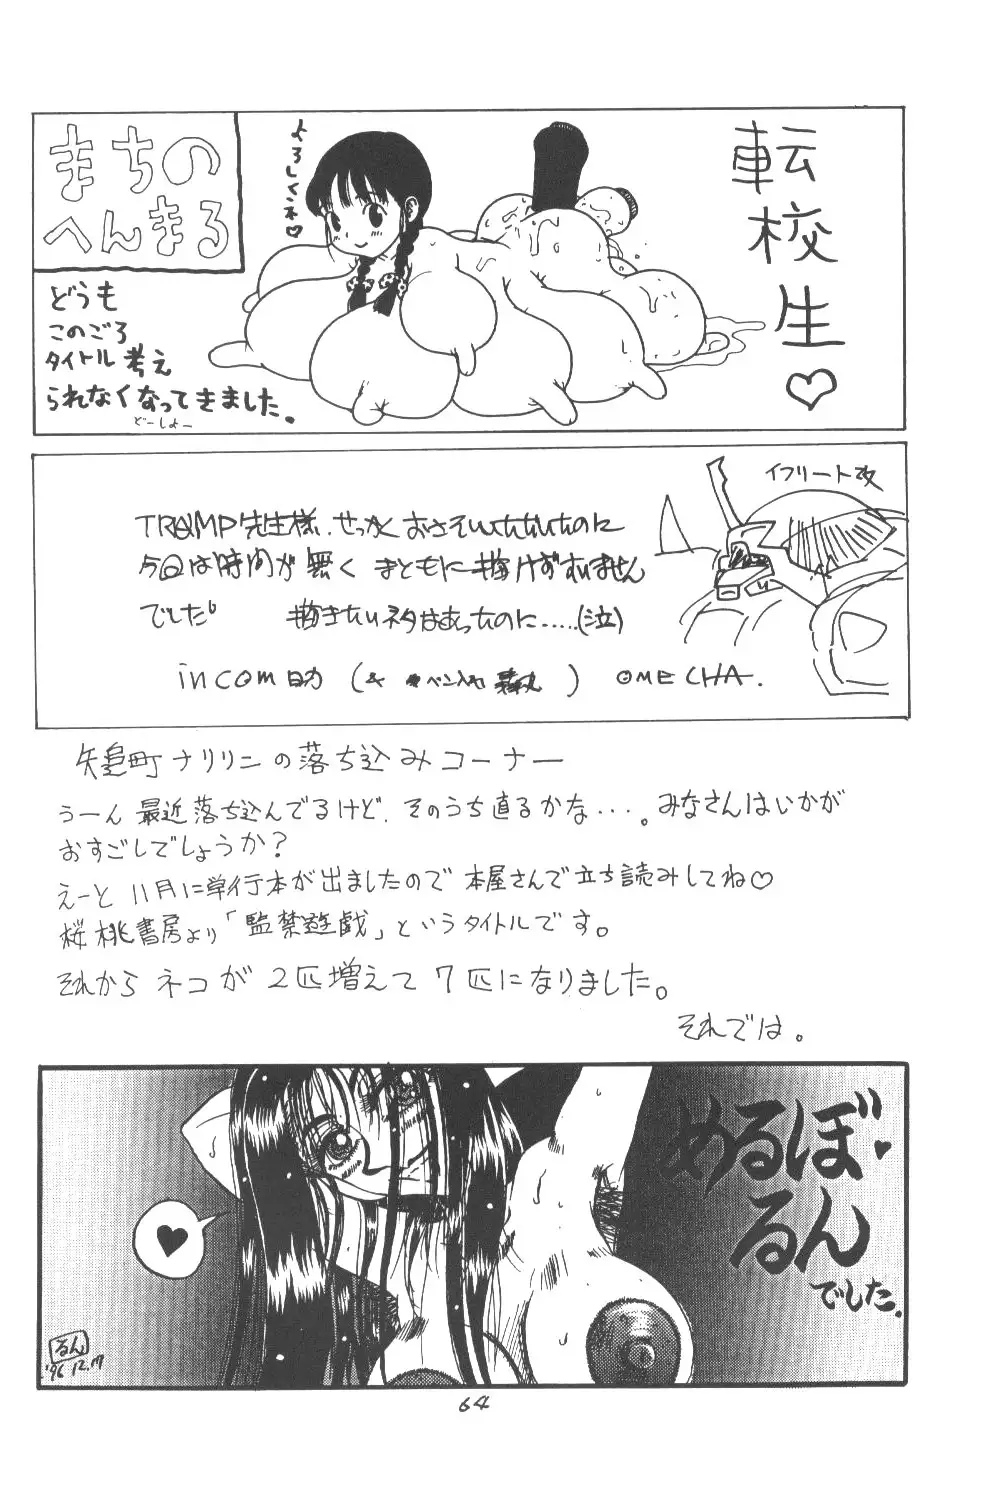 まちの
へんまる
よろしくネ♡
転校生♡
どうも
このごろ
タイトル考え
られなくなってきました.
どーしよー
イフリート改
TRAMP先生様.せっかくおさそいいただいたのに
今回は時間が無く まともに描けずすいません
でした。 描きたいネタはあったのに.....(泣)
incom助 (& ペン入れ ) OMECHA.
矢追町ナリリンの落ち込みコーナー
うーん最近落ち込んでるけど.そのうち直るかな・・・。みなさんはいかが
おすごしでしょうか?
えーと 11月に単行本が出ましたので本屋さんで立ち読みしてね♡
桜桃書房より「監禁遊戯」というタイトルです。
それからネコが2匹増えて7匹になりました。
それでは。
めるぼ
るん
でした.
♥
るん
'96 12.17
64